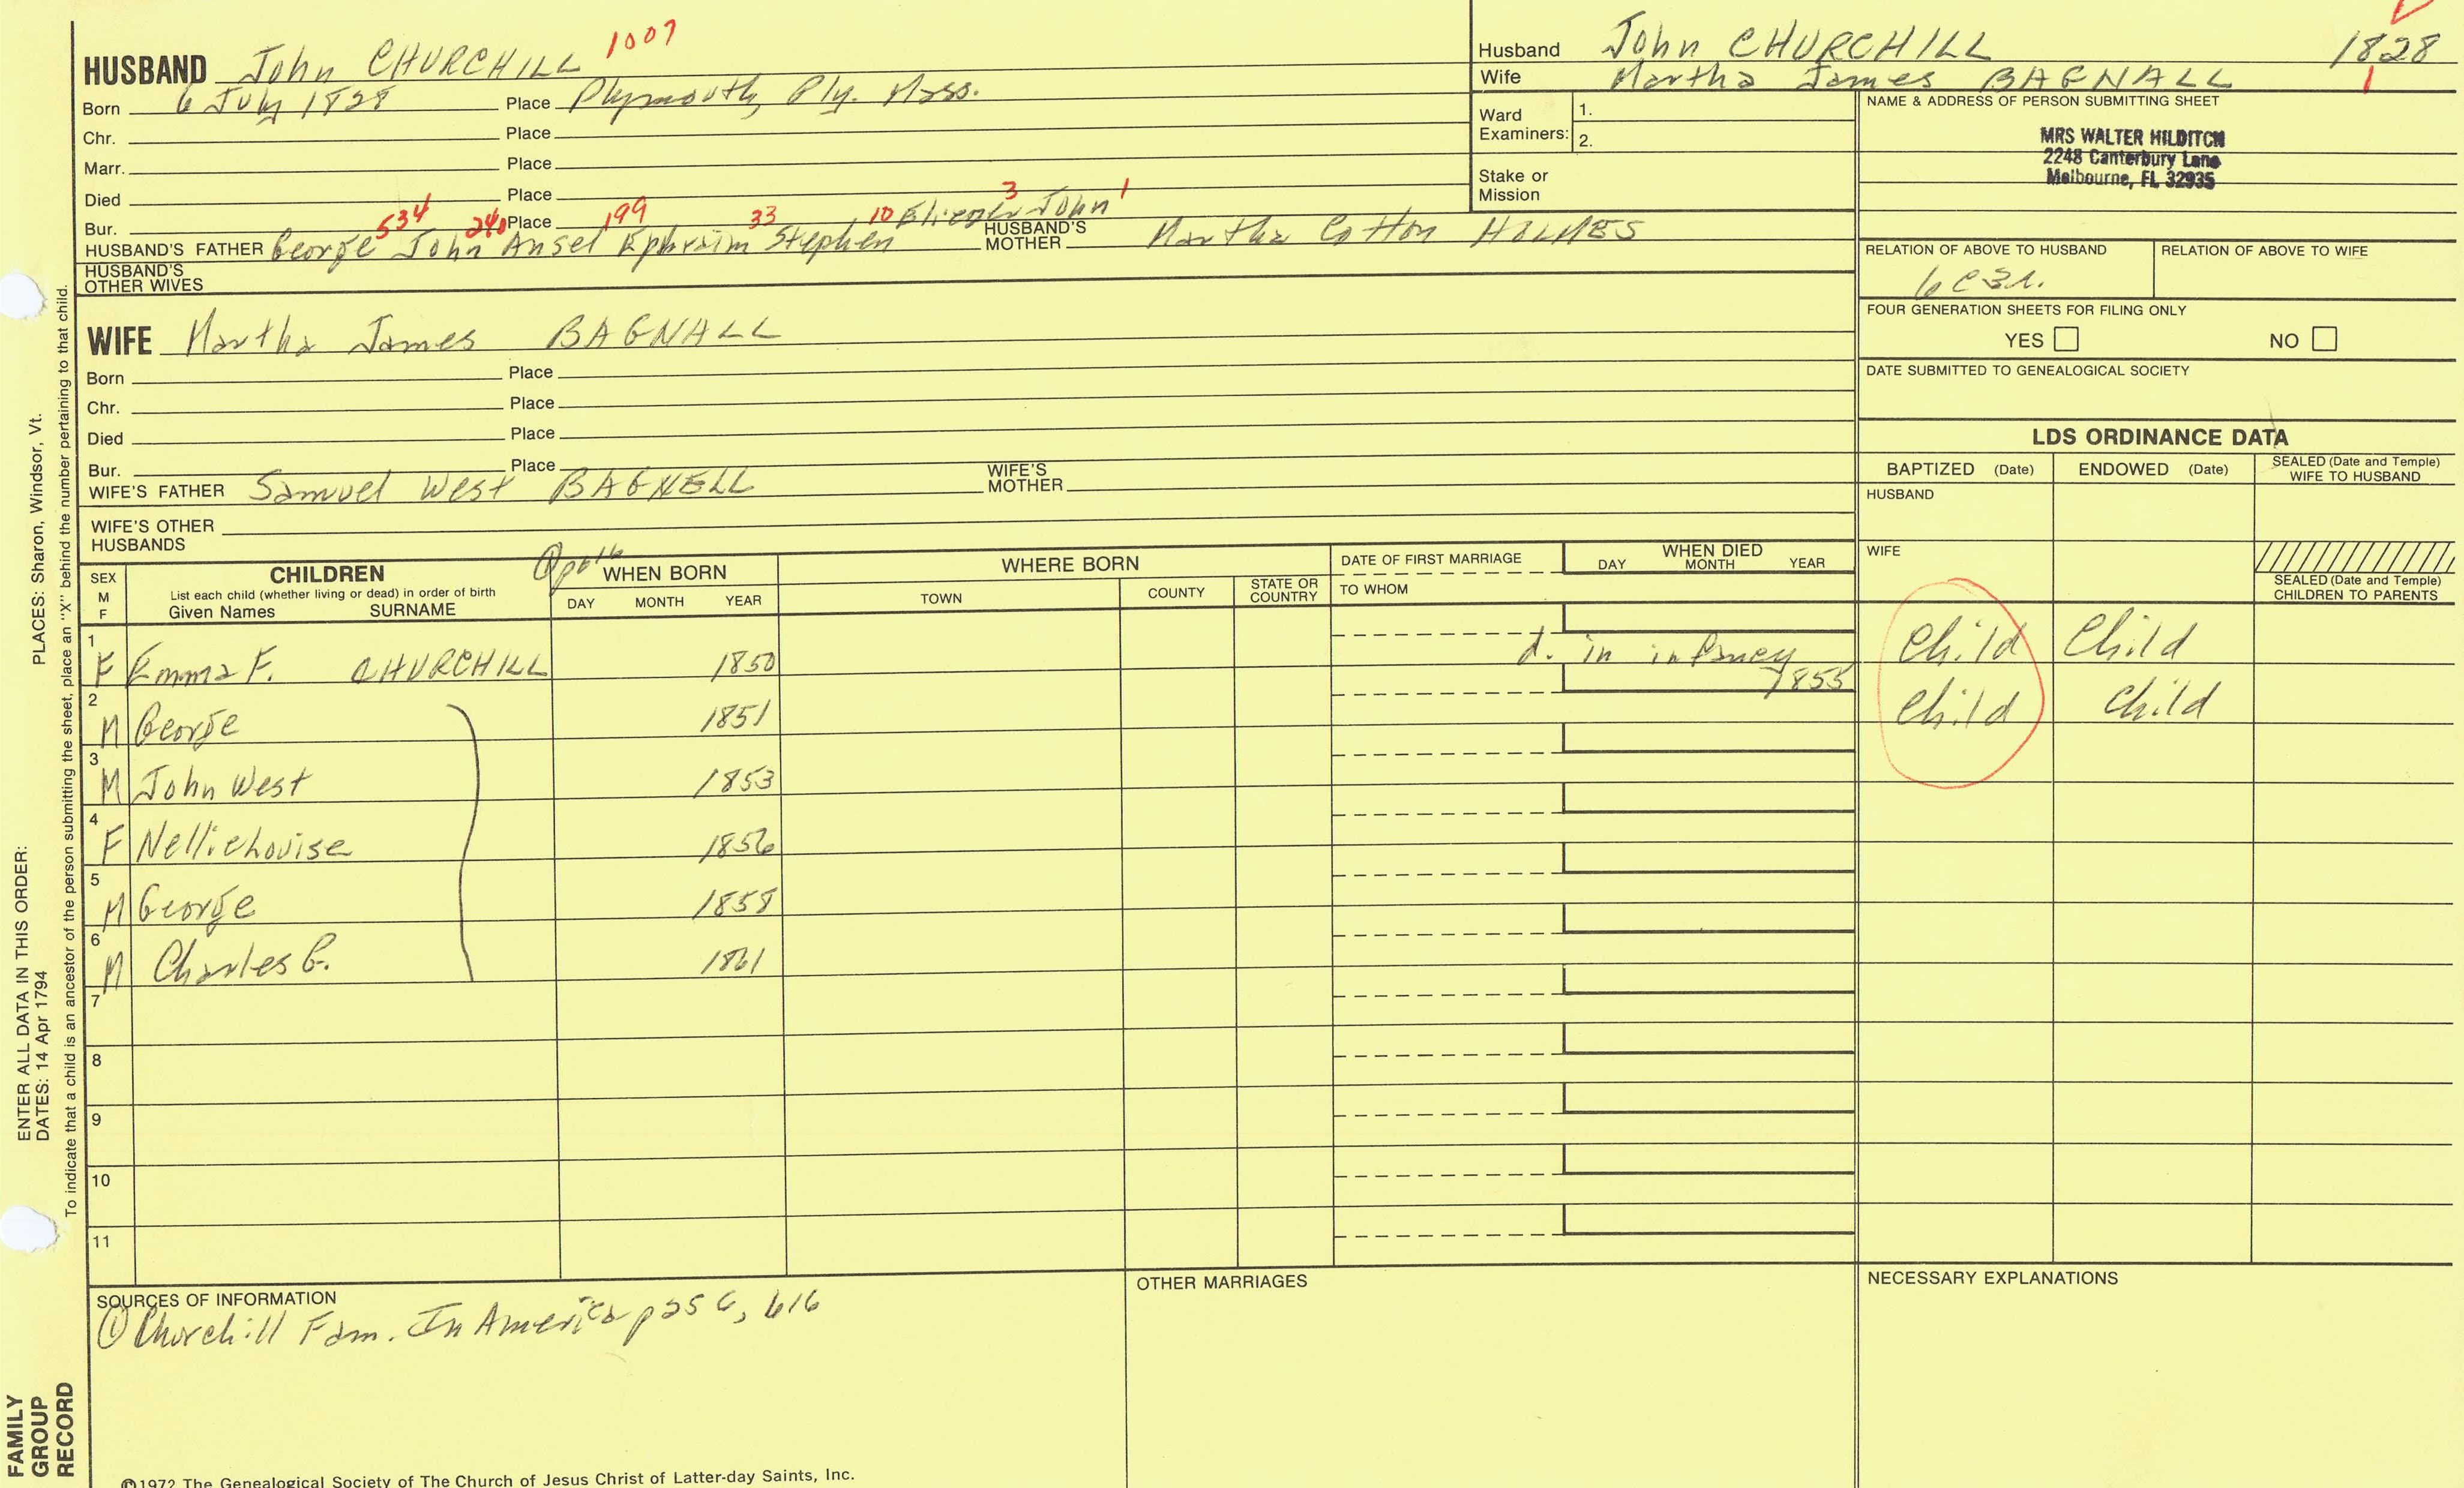 HUSBAND John CHURCHILL 1007
Born 6 July 1828 Place Plymouth, Ply. Mass.
Chr. Place
Marr. Place
Died Place
Bur. Place
534 240 199 33 10 3 John 1
HUSBAND'S FATHER George John Ansel Ephraim Stephen HUSBAND'S MOTHER Martha Cotton HOLMES
HUSBAND'S OTHER WIVES
Husband John CHURCHILL 1828
Wife Martha James BAGNALL 1
Ward Examiners: 1.
2.
Stake or Mission
NAME & ADDRESS OF PERSON SUBMITTING SHEET
MRS WALTER HILDITCH
2248 Canterbury Lane
Melbourne, FL 32935
RELATION OF ABOVE TO HUSBAND RELATION OF ABOVE TO WIFE
6C3R.
FOUR GENERATION SHEETS FOR FILING ONLY
YES NO
DATE SUBMITTED TO GENEALOGICAL SOCIETY
WIFE Martha James BAGNALL
Born Place
Chr. Place
Died Place
Bur. Place
WIFE'S FATHER Samuel West BAGNELL WIFE'S MOTHER
WIFE'S OTHER HUSBANDS
LDS ORDINANCE DATA
BAPTIZED (Date) ENDOWED (Date) SEALED (Date and Temple) WIFE TO HUSBAND
HUSBAND
WIFE
SEALED (Date and Temple) CHILDREN TO PARENTS
SEX M F
CHILDREN
List each child (whether living or dead) in order of birth
Given Names SURNAME
WHEN BORN
DAY MONTH YEAR
WHERE BORN
TOWN COUNTY STATE OR COUNTRY
DATE OF FIRST MARRIAGE
TO WHOM
WHEN DIED
DAY MONTH YEAR
1 F Emma F. CHURCHILL 1850 d. in infancy Child Child
2 M George 1851 1855 Child Child
3 M John West 1853
4 F Nellie Louise 1856
5 M George 1858
6 M Charles G. 1861
7
8
9
10
11
SOURCES OF INFORMATION
① Churchill Fam. In America p 256, 616
OTHER MARRIAGES
NECESSARY EXPLANATIONS
©1972 The Genealogical Society of The Church of Jesus Christ of Latter-day Saints, Inc.
PLACES: Sharon, Windsor, Vt.
ENTER ALL DATA IN THIS ORDER:
DATES: 14 Apr 1794
To indicate that a child is an ancestor of the person submitting the sheet, place an "X" behind the number pertaining to that child.
FAMILY
GROUP
RECORD